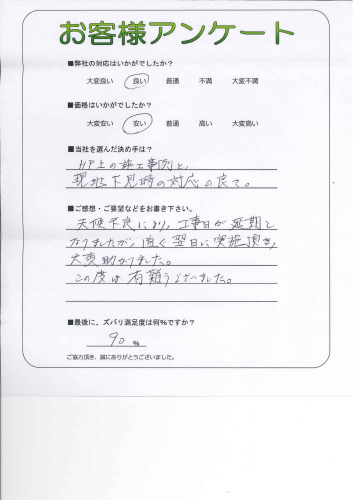 お客様アンケート
■弊社の対応はいかがでしたか?
大変良い 良い 普通 不満 大変不満
■価格はいかがでしたか?
大変安い 安い 普通 高い 大変高い
■当社を選んだ決め手は?
HP上の施工事例と、
現地下見時の対応の良さ。
■ご感想・ご要望などをお書き下さい。
天候不良により、工事日が延期と
なりましたが、直ぐ翌日に実施頂き、
大変助かりました。
この度は有難うございました。
■最後に、ズバリ満足度は何%ですか?
90 %
ご協力頂き、誠にありがとうございました。